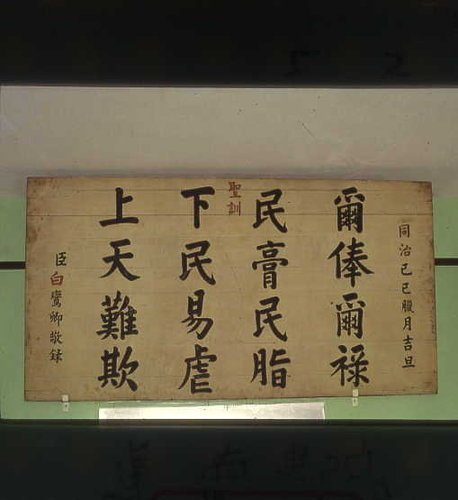 同治己巳臘月吉旦
聖訓
爾俸爾祿
民膏民脂
下民易虐
上天難欺
臣白鸞卿敬錄